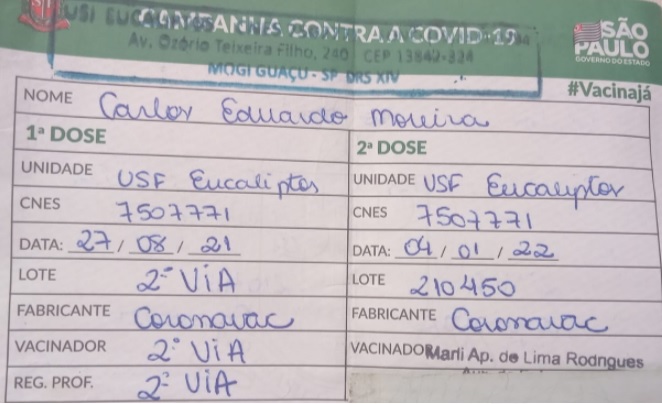 USF EUCALIPTOS
CARTÃO ANTI CONTRA A COVID-19
Av. Ozório Teixeira Filho, 240 CEP 13842-324
MOGI GUAÇU - SP DRS XIV
SÃO
PAULO
GOVERNO DO ESTADO
#Vacinajá
NOME Carlos Eduardo Moreira
1ª DOSE
2ª DOSE
UNIDADE USF Eucaliptos
UNIDADE USF Eucaliptos
CNES 7507771
CNES 7507771
DATA: 27 / 08 / 21
DATA: 04 / 01 / 22
LOTE 2ª VIA
LOTE 210450
FABRICANTE Coronavac
FABRICANTE Coronavac
VACINADOR 2ª VIA
VACINADOR Marli Ap. de Lima Rodrigues
REG. PROF. 2ª VIA